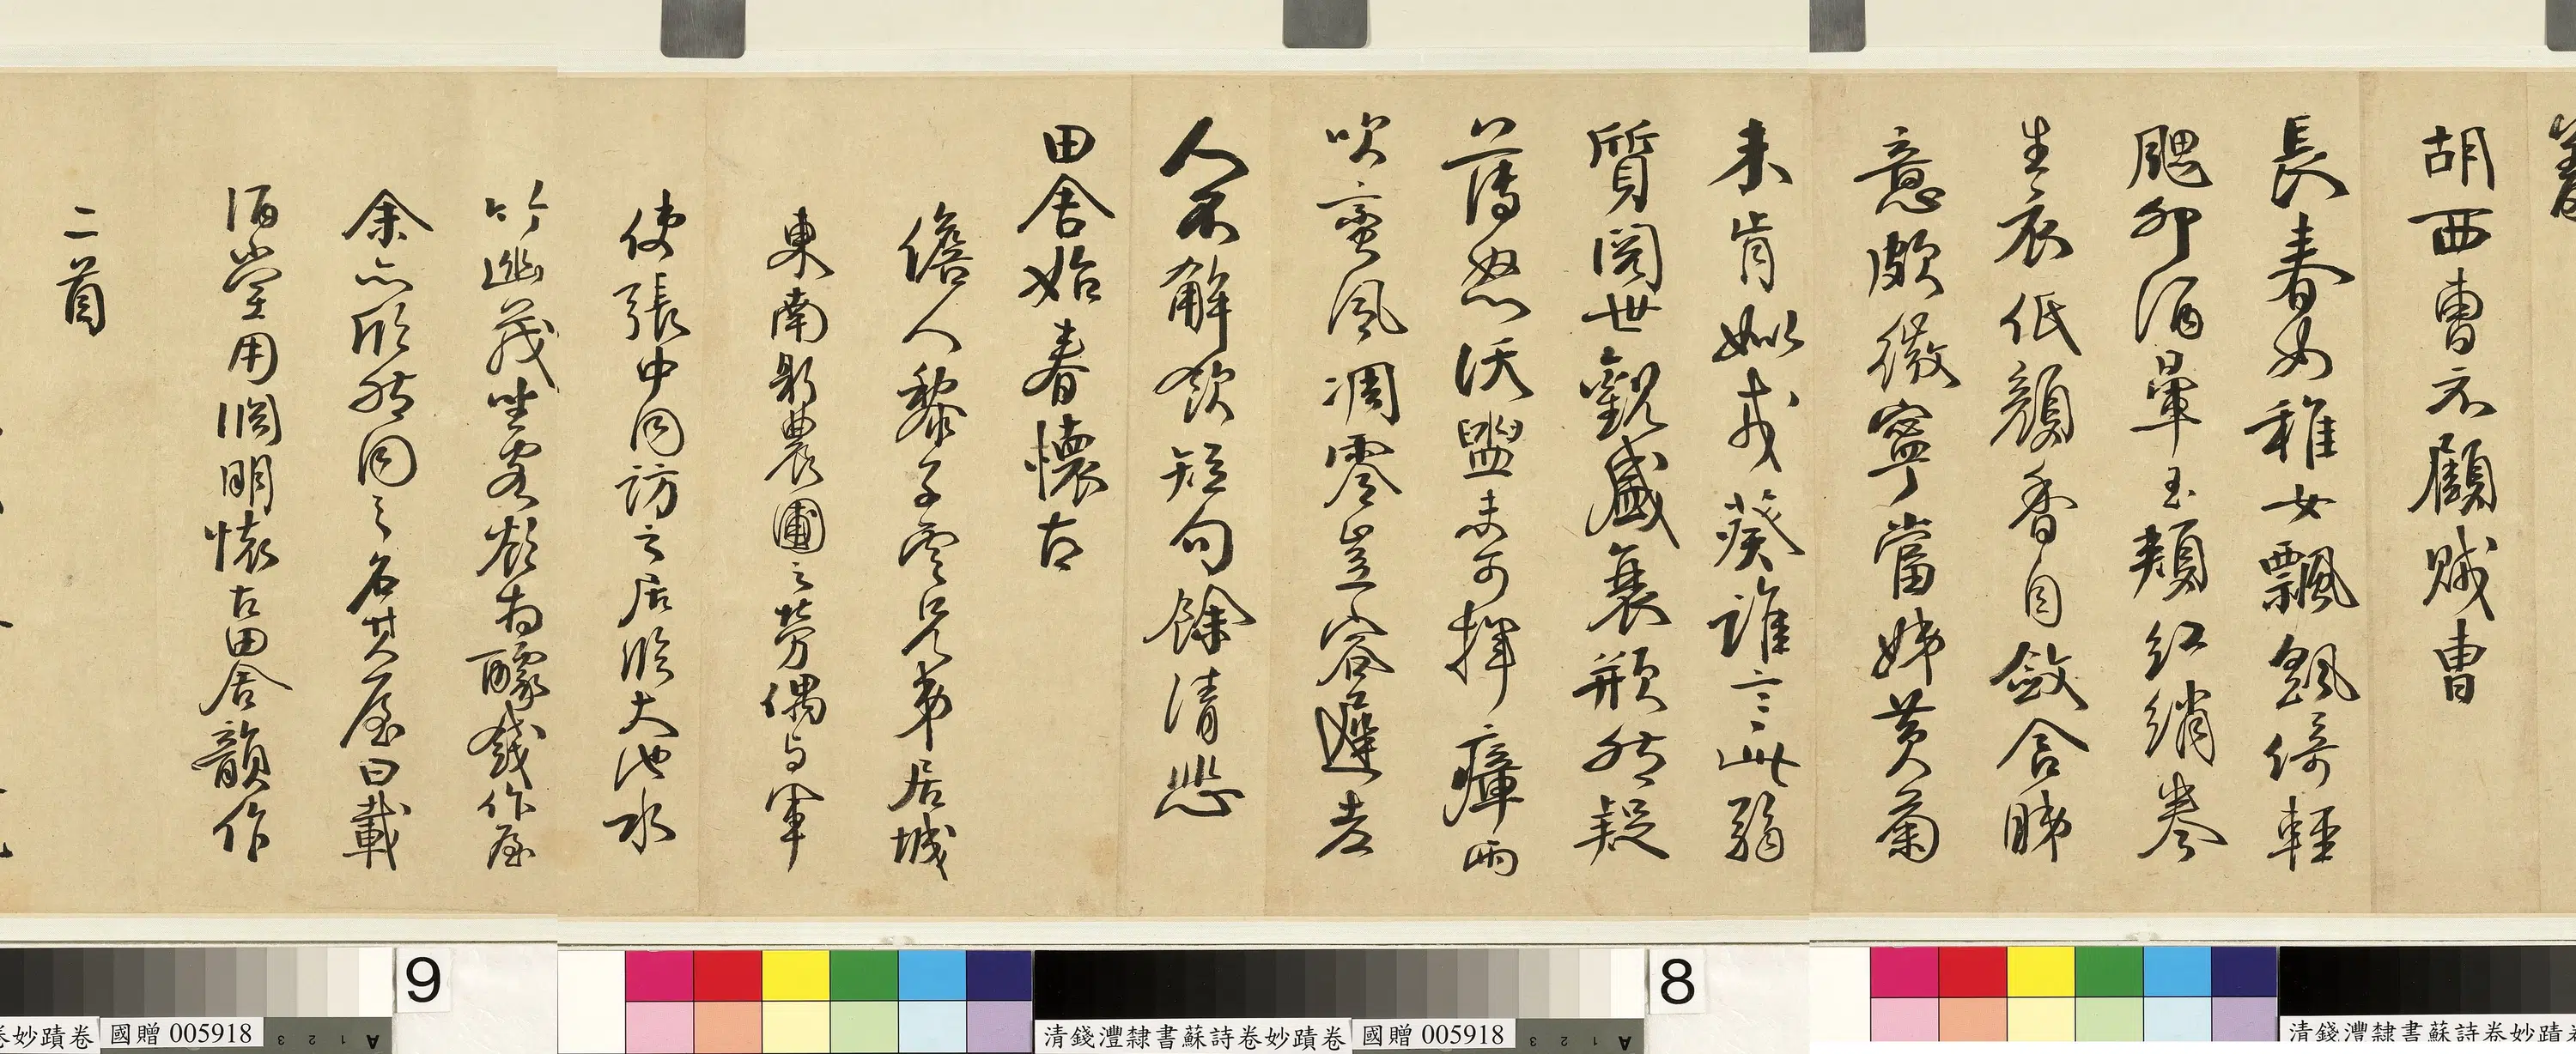 胡西曹示顧賊曹
長春如稚女飄颻倚輕
颸卯酒暈玉頰紅綃卷
生衣低顏香自斂含睇
意頗微寧當娣黃菊
未肯姒戎葵誰言此弱
質閱世觀盛衰頩然疑
薄怒沃盥未可揮瘴雨
吹蠻風凋零豈容遲老
人不解飲短句餘清悲
田舍始春懷古
儋人黎子雲兄弟居城
東南躬農圃之勞偶与軍
使張中同訪之居臨大池水
竹幽茂坐客欲為醵錢作屋
余亦欣然同之名其屋曰載
酒堂用淵明懷古田舍韻作
二首
9
8
卷妙蹟卷 國贈 005918
A 1 2 3
清錢灃隸書蘇詩卷妙蹟卷 國贈 005918
A 1 2 3
清錢灃隸書蘇詩卷妙蹟